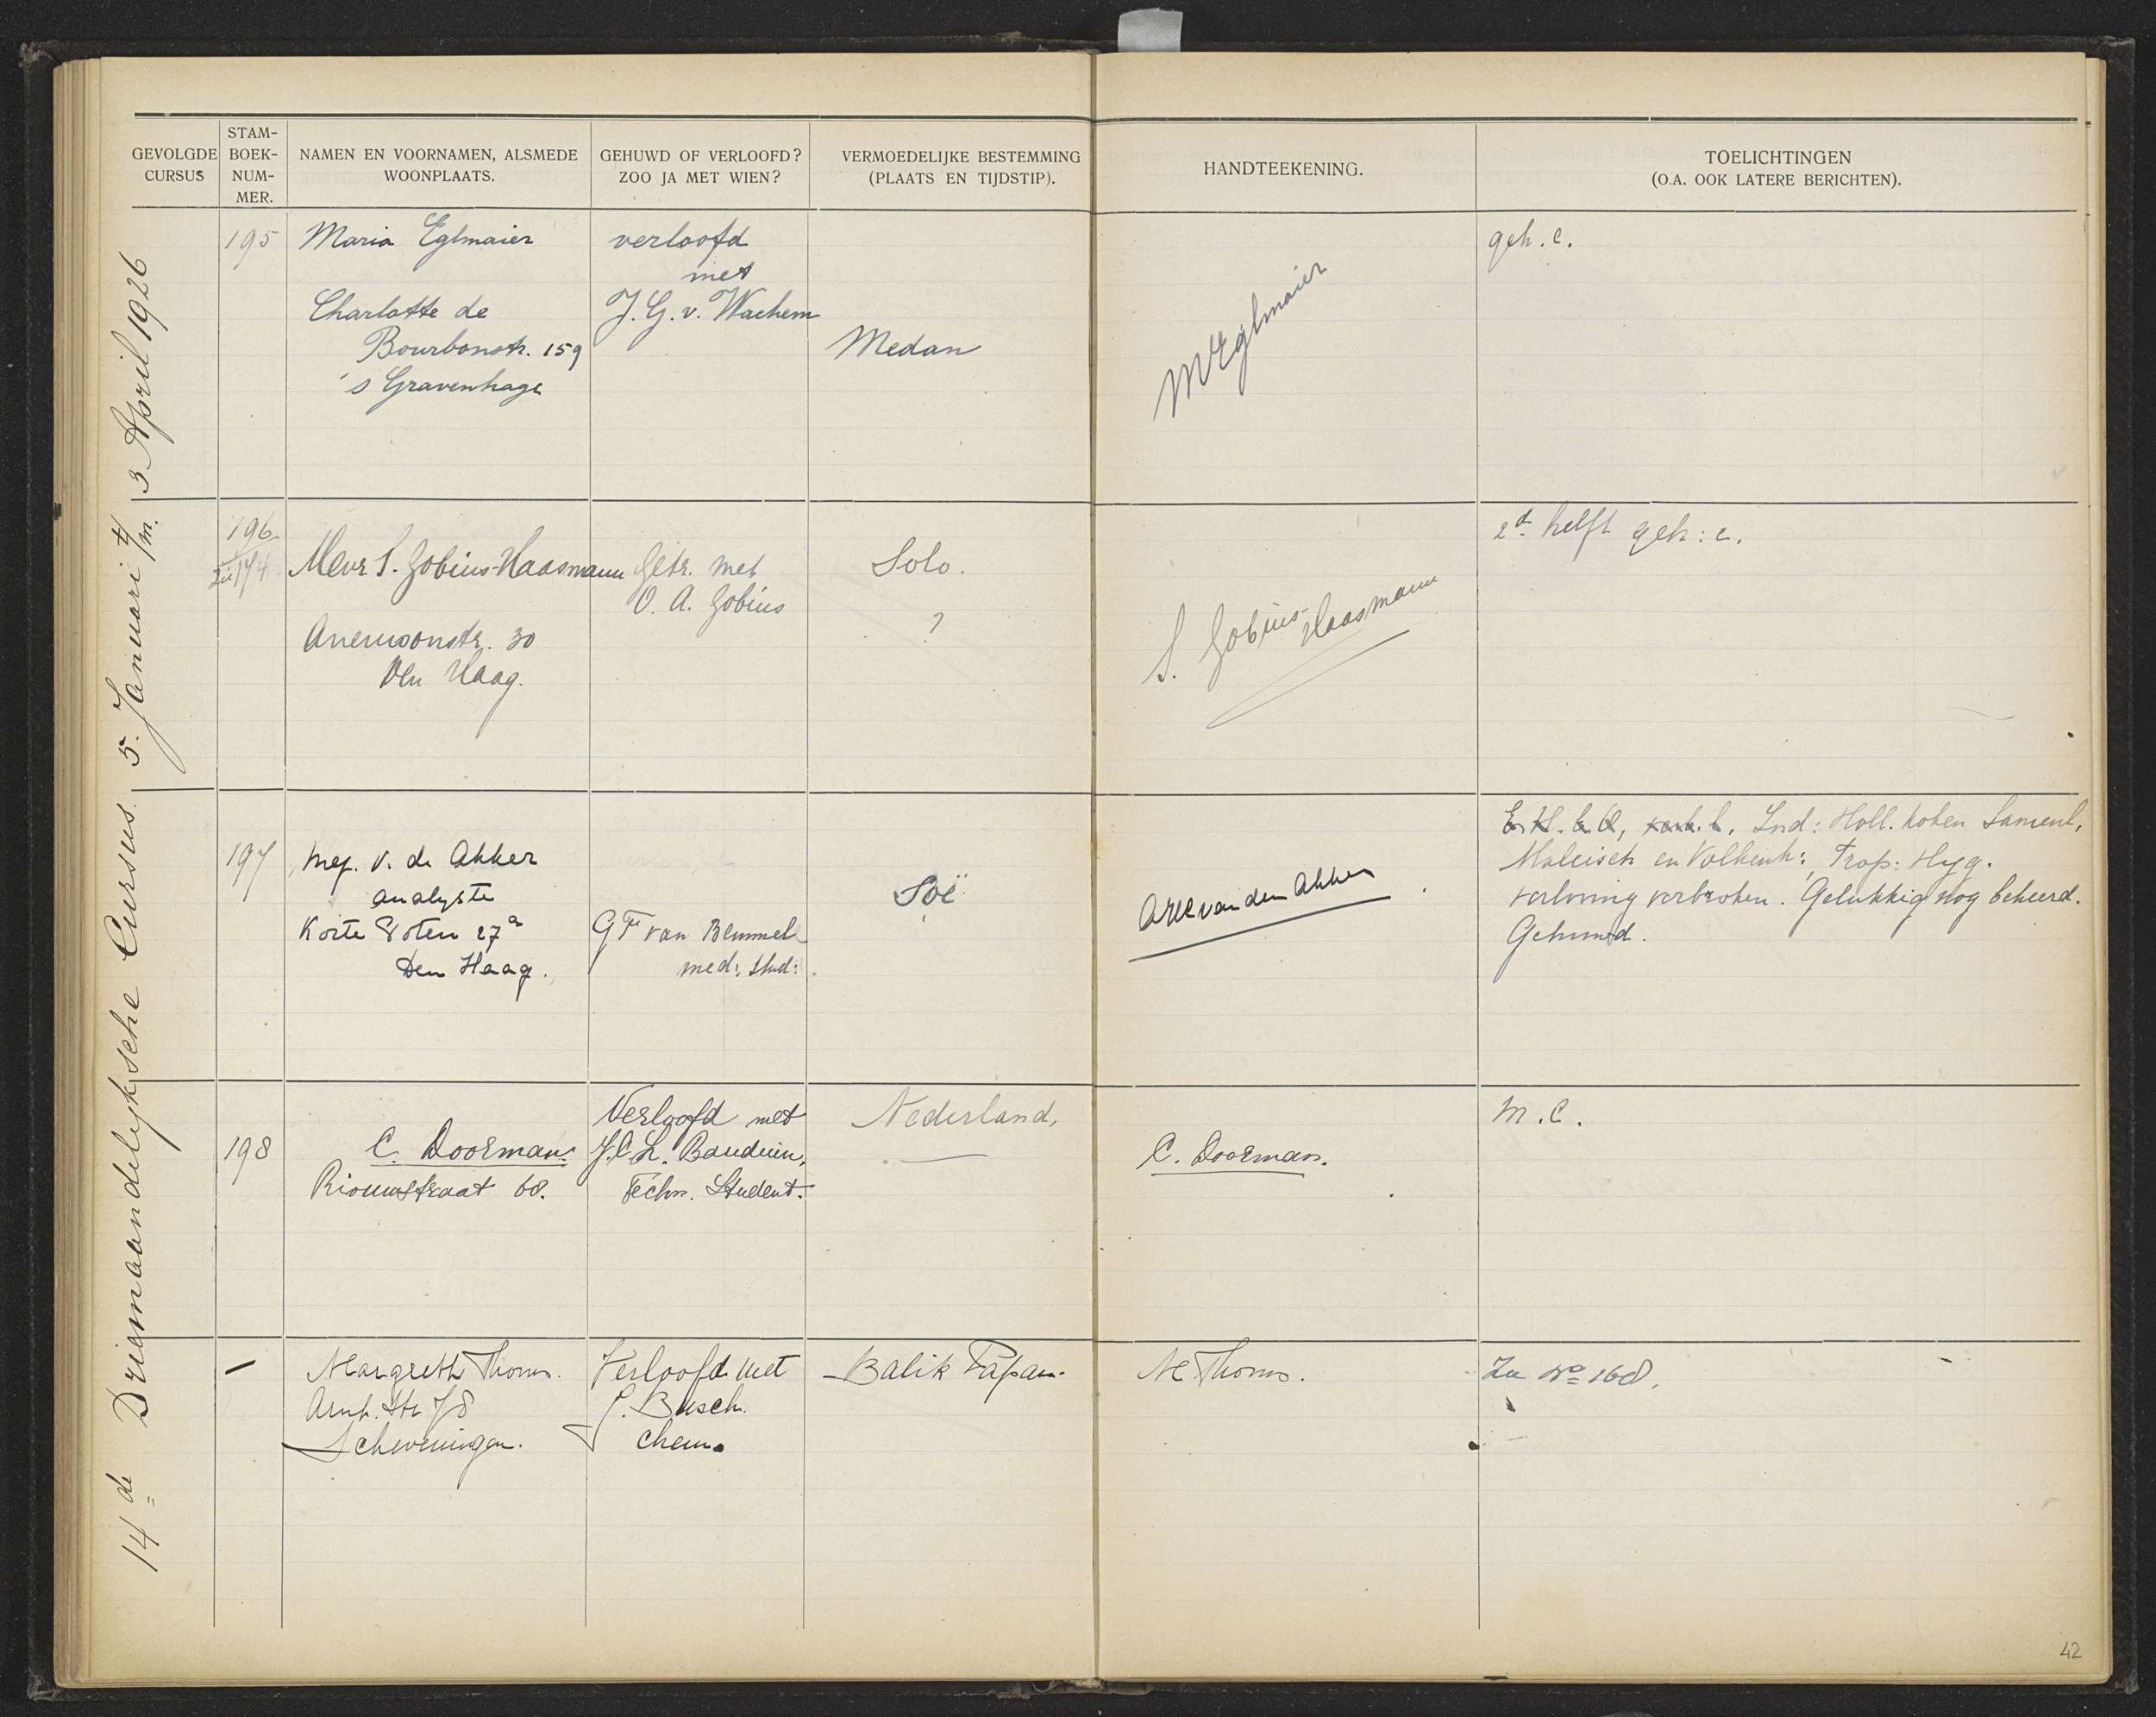 GEVOLGDE CURSUS
STAM-BOEK-NUM-MER.
NAMEN EN VOORNAMEN, ALSMEDE WOONPLAATS.
GEHUWD OF VERLOOFD? ZOO JA MET WIEN?
VERMOEDELIJKE BESTEMMING (PLAATS EN TIJDSTIP).
HANDTEEKENING.
TOELICHTINGEN
(O.A. OOK LATERE BERICHTEN).
14de Driemaandelijksche Cursus. 5. Januari t/m. 3 April 1926
195
Maria Eglmaier
Charlotte de
Bourbonstr. 159
's Gravenhage
verloofd
met
J. G. v. Wachem
Medan
M Eglmaier
geh. c.
196
zie 174
Mevr S. Gobius-Haasmann
Anemoonstr. 30
Den Haag.
Getr. met
O. A. Gobius
Solo.
?
S. Gobius-Haasmann
2de helft geh: c.
197
Mej. v. de Akker
analyste
Korte Poten 27a
Den Haag.
G F van Bemmel
med: stud:
Soë
van den Akker
Ind: Holl. koken Samenl,
Maleisch en Volkenk: Trop: Hyg.
verloving verbroken. Gelukkig nog bekeerd.
Gehuwd.
198
C. Doorman.
Riouwstraat 68.
Verloofd met
J. C. L. Bauduin,
Techn. Student.
Nederland,
C. Doorman.
M. C.
–
Margreth Thoms.
Arnh. Str 78
Scheveningen.
Verloofd met
Busch.
chem.
Balik Papan.
M Thoms.
Zie No 168.
42